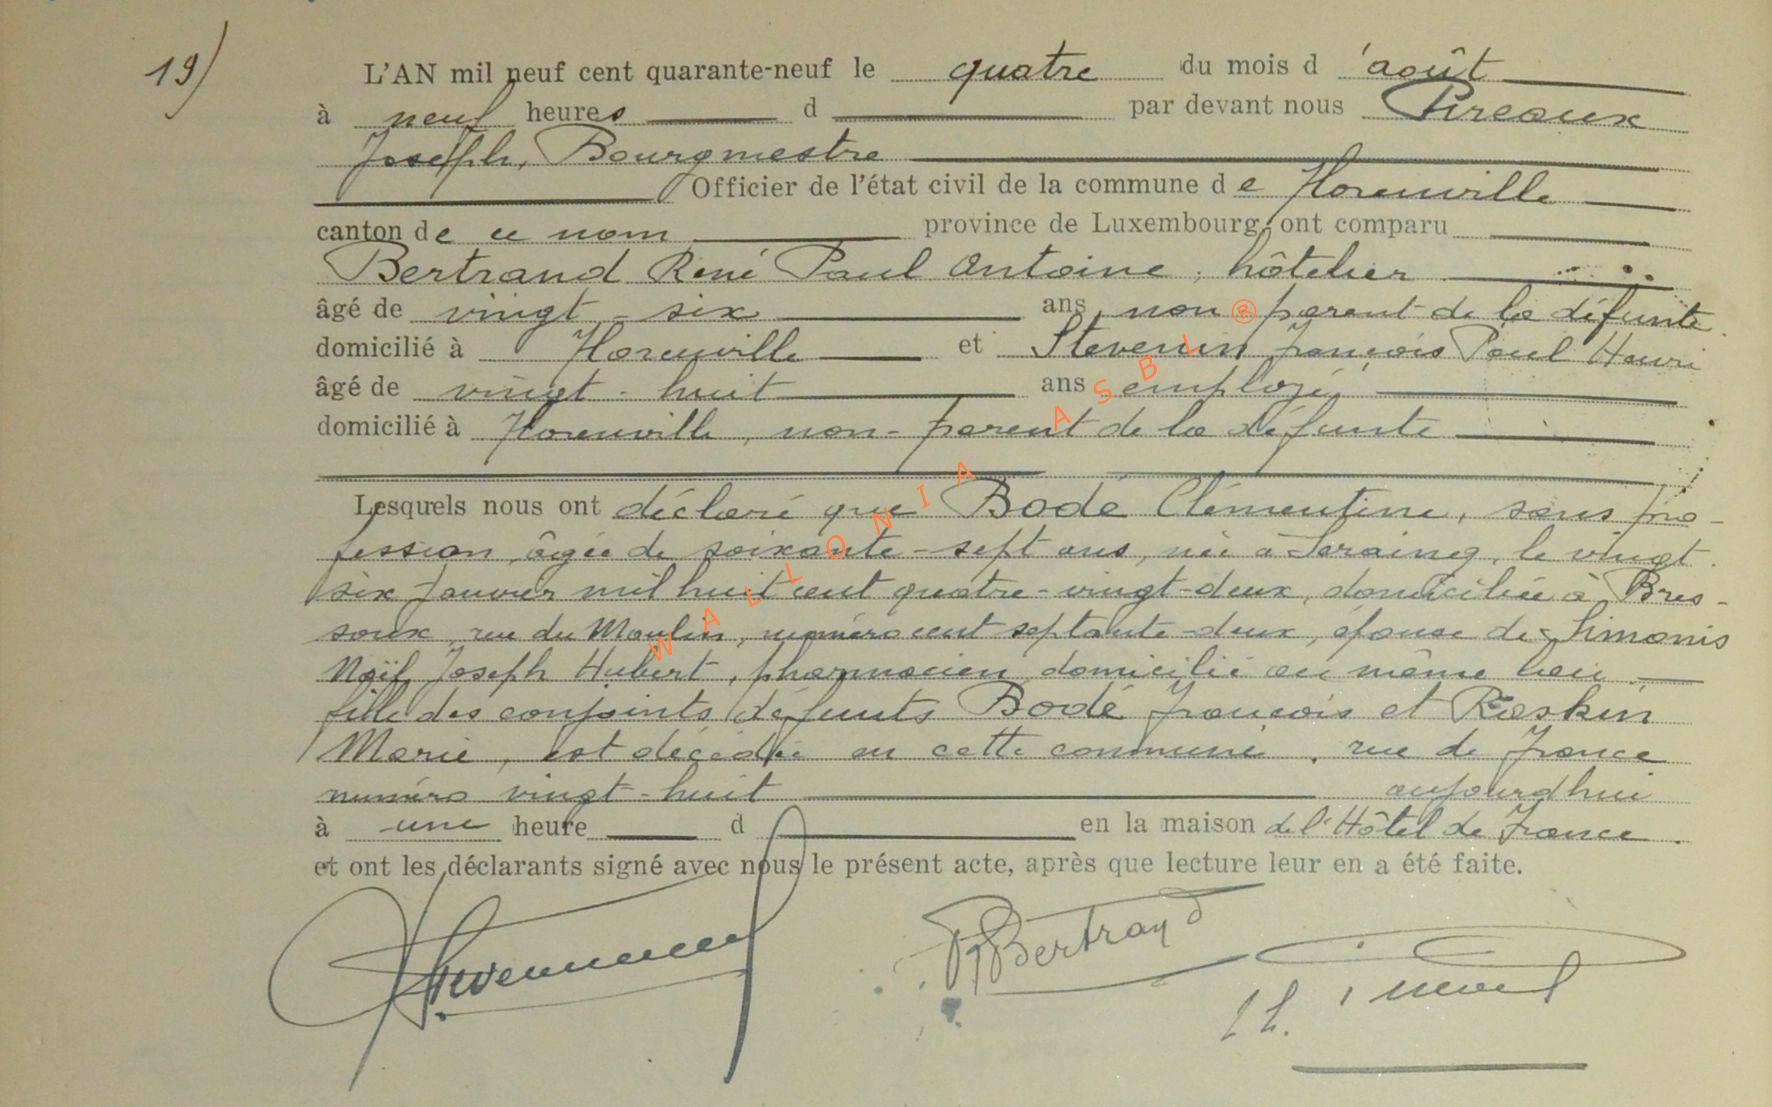 19)
L'AN mil neuf cent quarante-neuf le quatre du mois d'août
à neuf heures d par devant nous Pireaux
Joseph, Bourgmestre
Officier de l'état civil de la commune de Florenville
canton de ce nom province de Luxembourg, ont comparu
Bertrand René Paul Antoine, hôtelier
âgé de vingt-six ans, non parent de la défunte
domicilié à Florenville et Stevenin François Paul Henri
âgé de vingt-huit ans employé
domicilié à Florenville, non-parent de la défunte
Lesquels nous ont déclaré que Bodé Clémentine, sans pro-
fession, âgée de soixante-sept ans, née à Seraing, le vingt-
six Janvier mil huit cent quatre-vingt-deux, domiciliée à Bres-
soux, rue du Moulin, numéro cent septante-deux, épouse de Simonis
Noël Joseph Hubert, pharmacien domicilié au même lieu
fille des conjoints défunts Bodé François et Raskin
Marie, est décédée en cette commune, rue de France
numéro vingt-huit aujourd'hui
à une heure d en la maison de l'Hôtel de France
et ont les déclarants signé avec nous le présent acte, après que lecture leur en a été faite.
Stevenin PBertrand
WALLONIA ASBL ®